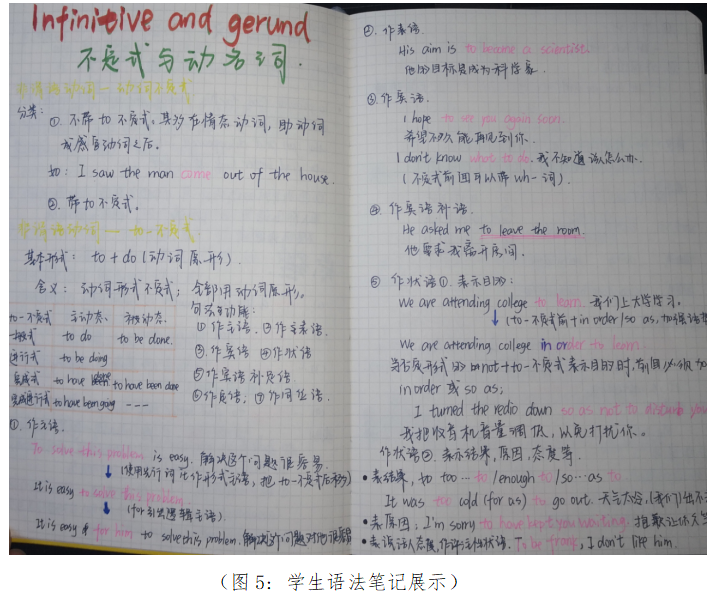 Infinitive and gerund
不定式与动名词.
非谓语动词—动词不定式
分类: ①. 不带to不定式, 其多在情态动词, 助动词
或感官动词之后.
如: I saw the man came out of the house.
②. 带to不定式.
非谓语动词— to-不定式
基本形式: to + do (动词原形).
含义: 动词形式不定式; 全部用动词原形.
to-不定式 主动态. 被动态.
一般式 to do to be done.
进行式 to be doing
完成式 to have done to have been done
完成进行式 to have been going ---
句法功能:
①作主语. ②作表语.
③.作宾语 ④作状语
⑤作宾语补足语
⑥作定语. ⑦作同位语.
①. 作主语.
To solve this problem is easy. 解决这个问题很容易.
(使用it作形式主语, 把to-不定式后移)
It is easy to solve this problem.
(for引出逻辑主语).
It is easy for him to solve this problem. 解决这个问题对他很容易
②. 作表语.
His aim is to become a scientist.
他的目标是成为科学家.
③作宾语.
I hope to see you again soon.
希望不久能再见到你.
I don't know what to do. 我不知道该怎么办.
(不定式前面可以带wh-词).
④ 作宾语补语.
He asked me to leave the room.
他要求我离开房间.
⑤ 作状语①. 表示目的:
We are attending college to learn. 我们上大学学习.
(to-不定式前+in order/so as, 加强语
We are attending college in order to learn.
当否定形式的not+to-不定式表示目的时, 前面必须加
in order 或 so as;
I turned the redio down so as not to disturb you
我把收音机音量调低, 以免打扰你.
作状语②. 表示结果, 原因, 态度等.
• 表结果, to too ··· to /enough to/so···as to
It was too cold (for as) to go out. 天气太冷, (我们)出不
• 表原因; I'm sorry to have kept you waiting. 抱歉让你久等
• 表说话人态度, 作评注性状语. To be frank, I don't like him.
(图 5: 学生语法笔记展示)